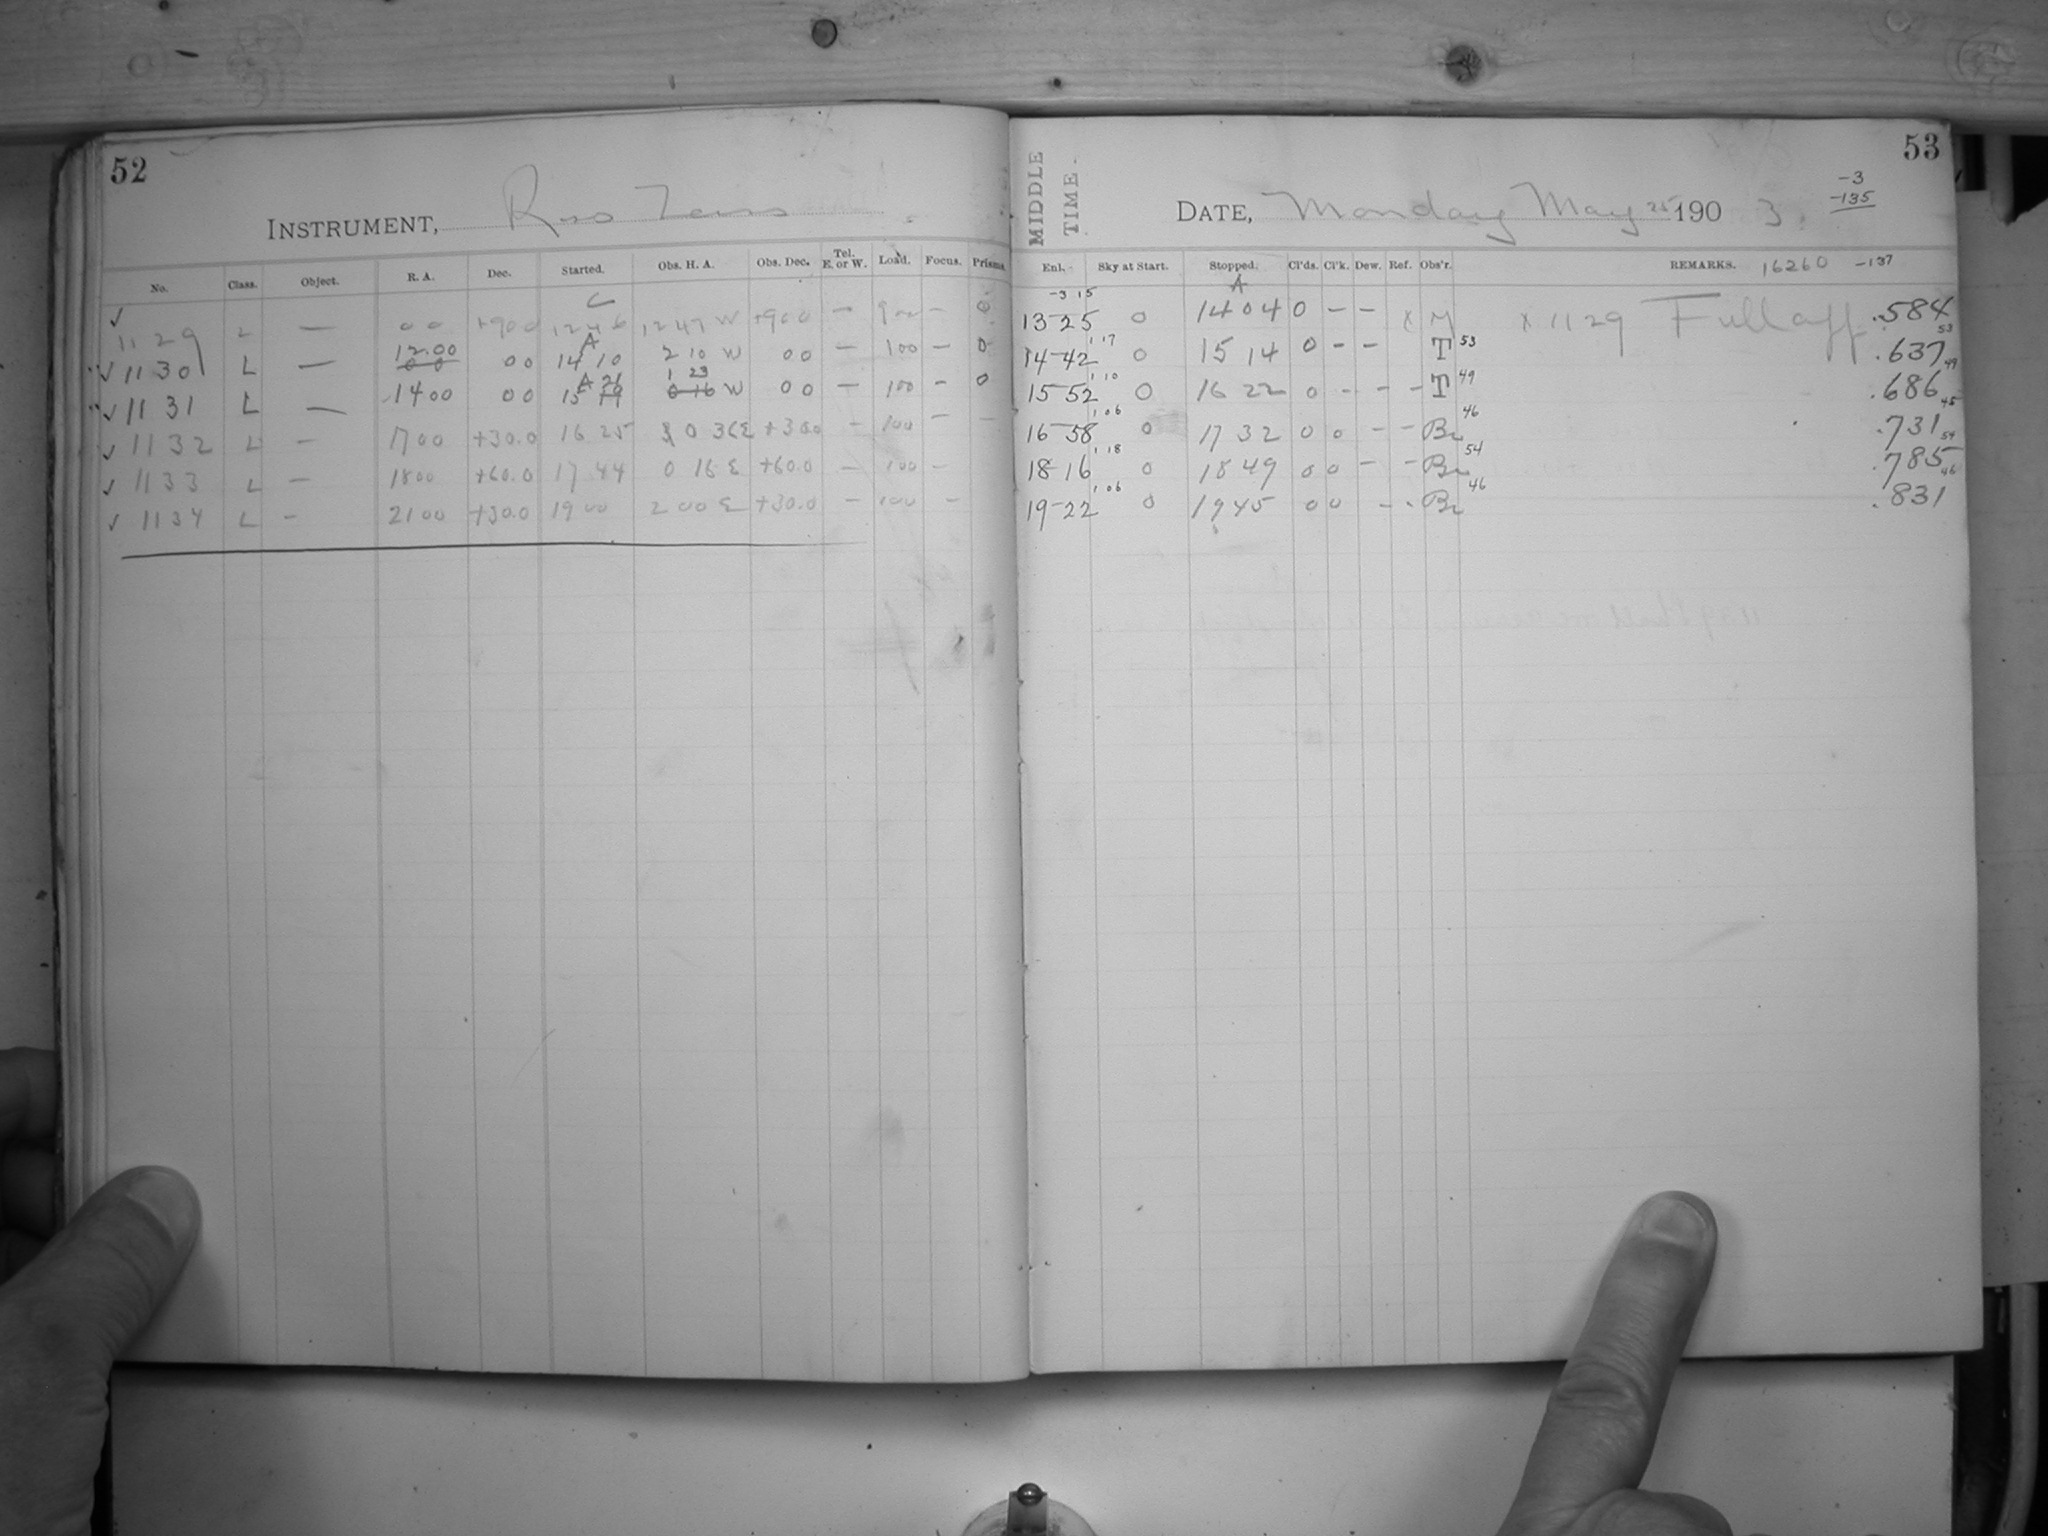 52
INSTRUMENT,
No. Class. Object. R. A. Dec. Started. Obs. H. A. Obs. Dec. Tel. E. or W. Load. Focus. Prisms.
C
✓ 1129 L — 0 0 +90 0 12 46 12 47 W +90 0 — — 0
12.00 A
✓ 1130 L — 0 0 0 0 14 10 2 10 W 0 0 — 100 — 0
A 26 1 23
✓ 1131 L — 14 00 0 0 15 0 16 W 0 0 — 100 — 0
✓ 1132 L — 17 00 +30.0 16 25 0 36 E +30.0 — 100 — —
✓ 1133 L — 18 00 +60.0 17 44 0 16 E +60.0 — 100 —
✓ 1134 L — 21 00 +30.0 19 00 2 00 E +30.0 — 100 —
53
MIDDLE TIME.
-3
-135
DATE, Monday May 25 190 3.
Enl. Sky at Start. Stopped. Cl'ds. Cl'k. Dew. Ref. Obs'r. REMARKS. 16260 -137
-3 15 A
13-25 0 14 04 0 — — x M x 1129 Full aff. .584
1 17 53
14-42 0 15 14 0 — — T 53 .637
1 10 49
15-52 0 16 22 0 - - - T 49 .686
1 06 46 45
16-58 0 17 32 0 0 - - Br .731
1 18 54 54
18-16 0 18 49 0 0 - - Br .785
1 06 46 46
19-22 0 19 45 0 0 - - Br .831